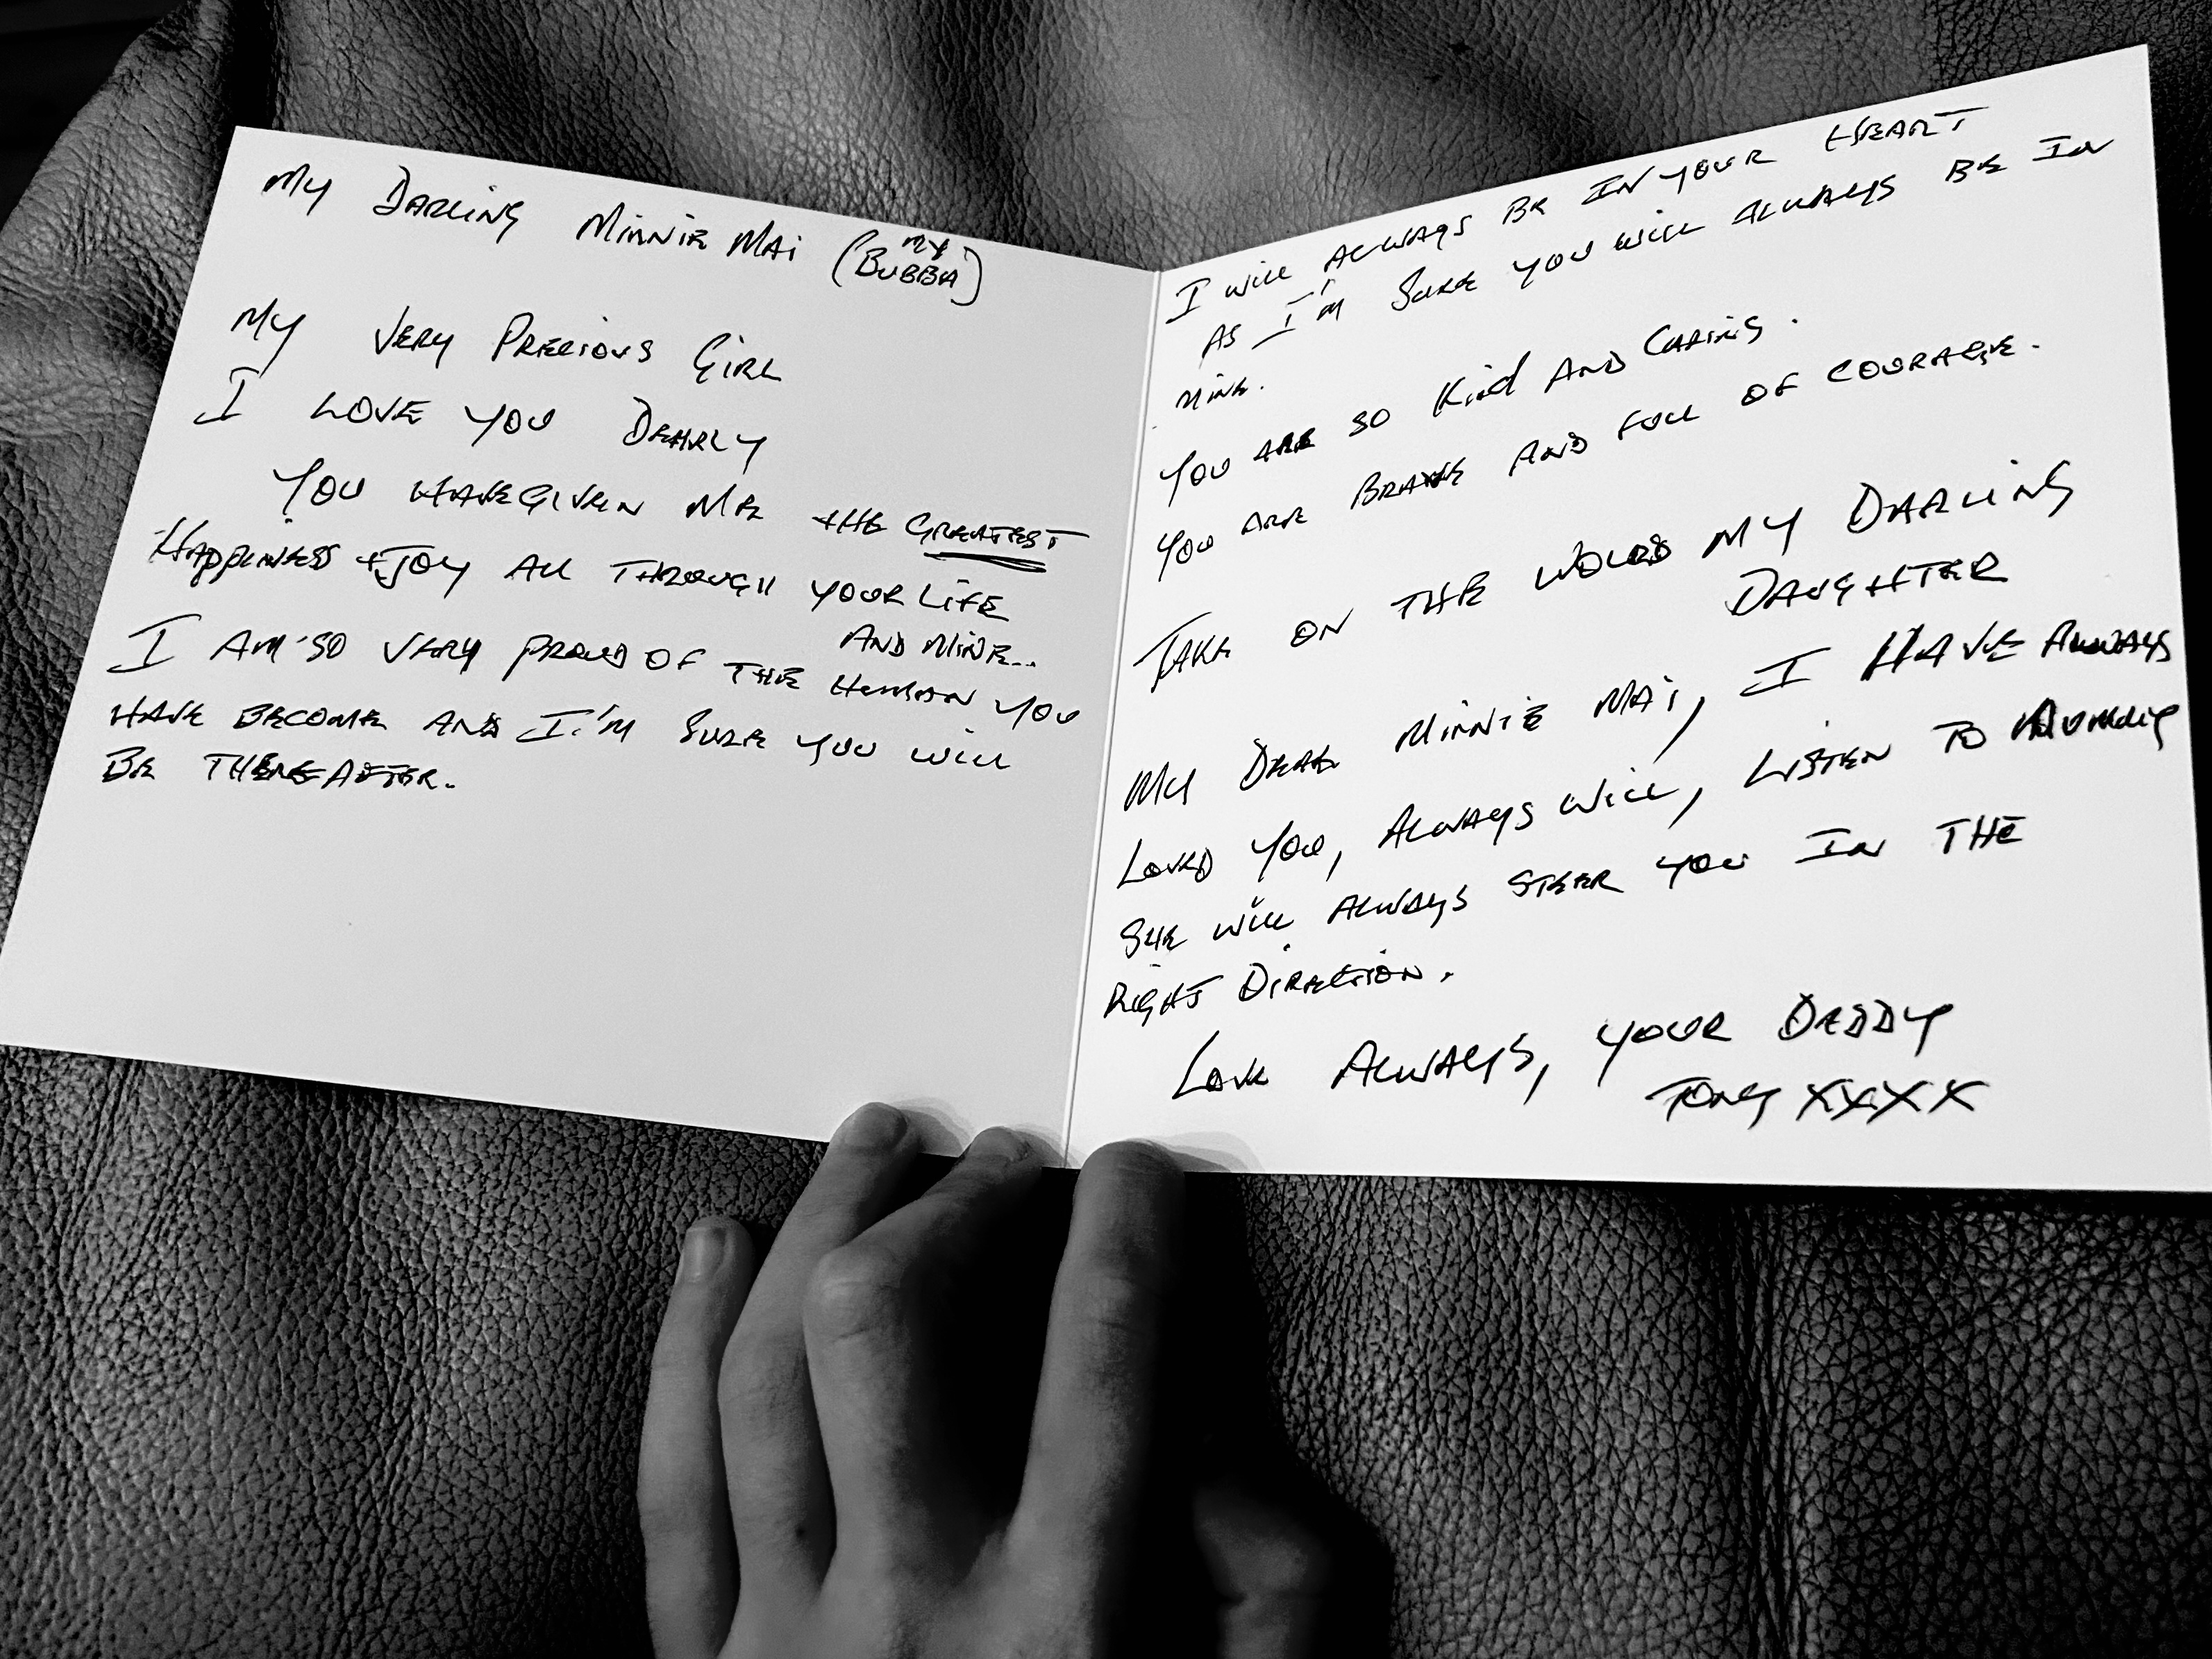 My Darling Minnie Mai (My Bubba)
My Very Precious Girl
I Love You Dearly
You have given me the Greatest
Happiness + Joy all through your life
and mine...
I am so very proud of the human you
have become and I'm sure you will
be thereafter.
I will always be in your heart
as I'm sure you will always be in
mine.
You are so kind and caring.
You are brave and full of courage.
Take on the world my darling
daughter
My dear Minnie Mai, I have always
loved you, always will, listen to Mummy
she will always steer you in the
right direction.
Love always, your Daddy
Tony xxxx